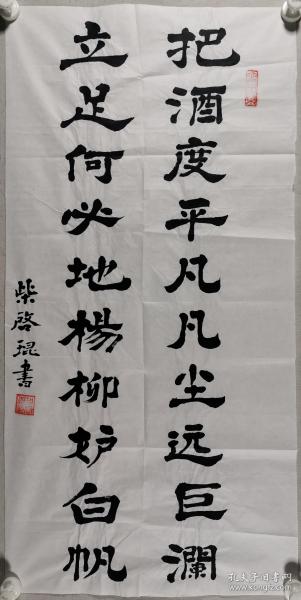 把酒度平凡凡尘远巨澜
立足何必地楊柳妒白帆
柴啓琨書
孔夫子旧书网